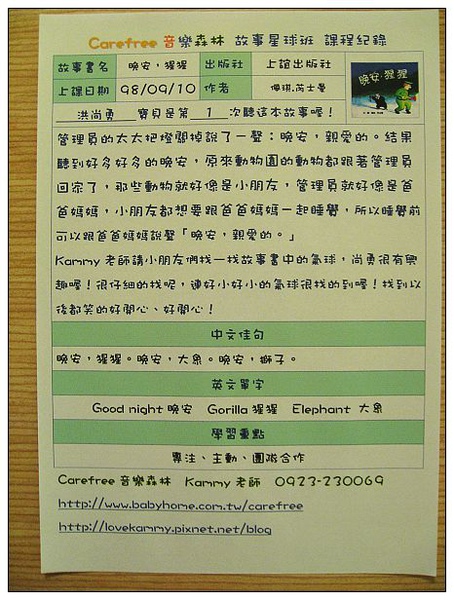 Carefree 音樂森林 故事星球班 課程紀錄
故事書名 晚安，猩猩 出版社 上誼出版社
上課日期 98/09/10 作者 佩琪.芮士曼
晚安，猩猩
洪尚勇 寶貝是第 1 次聽這本故事喔！
管理員的太太把燈關掉說了一聲：晚安，親愛的。結果
聽到好多好多的晚安，原來動物園的動物都跟著管理員
回家了，那些動物就好像是小朋友，管理員就好像是爸
爸媽媽，小朋友都想要跟爸爸媽媽一起睡覺，所以睡覺前
可以跟爸爸媽媽說聲「晚安，親愛的。」
Kammy 老師請小朋友們找一找故事書中的氣球，尚勇很有興
趣喔！很仔細的找呢，連好小好小的氣球很找的到喔！找到以
後都笑的好開心、好開心！
中文佳句
晚安，猩猩。晚安，大象。晚安，獅子。
英文單字
Good night 晚安 Gorilla 猩猩 Elephant 大象
學習重點
專注、主動、團隊合作
Carefree 音樂森林 Kammy 老師 0923-230069
http://www.babyhome.com.tw/carefree
http://lovekammy.pixnet.net/blog